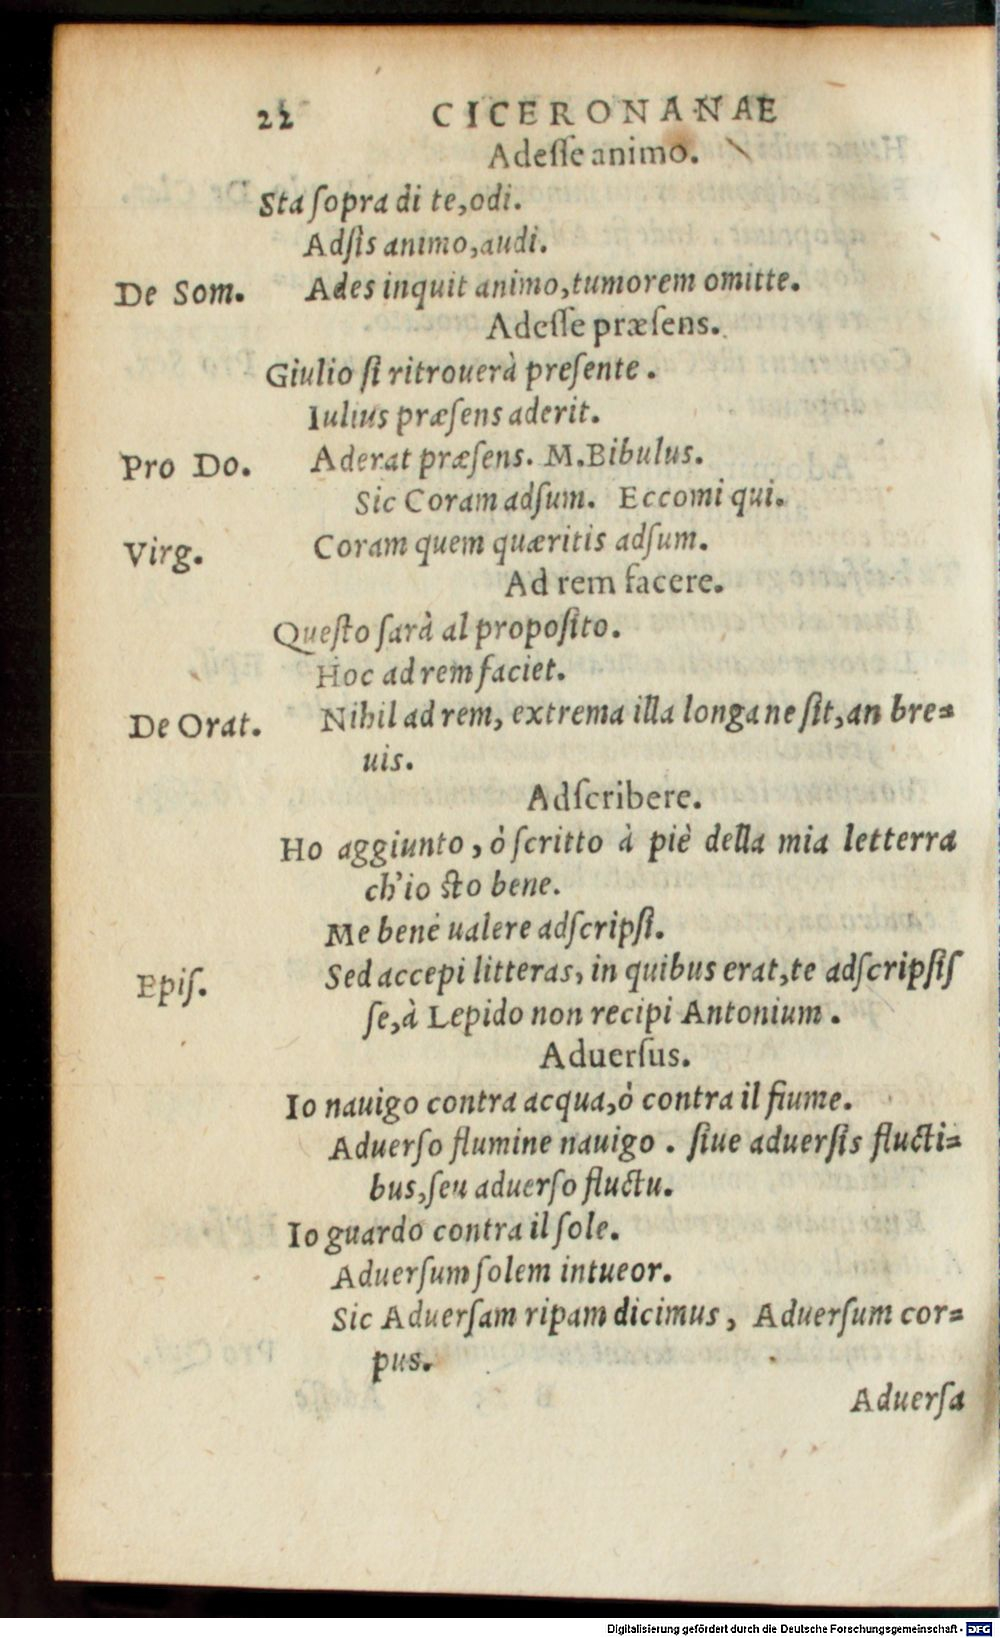 22 CICERONANAE
Adeſſe animo.
Sta ſopra di te, odi.
Adſis animo, audi.
De Som. Ades inquit animo, tumorem omitte.
Adeſſe præſens.
Giulio ſi ritrouerà preſente.
Iulius præſens aderit.
Pro Do. Aderat præſens. M. Bibulus.
Sic Coram adſum. Eccomi qui.
Virg. Coram quem quæritis adſum.
Ad rem facere.
Queſto ſarà al propoſito.
Hoc ad rem faciet.
De Orat. Nihil ad rem, extrema illa longa ne ſit, an bre=
uis.
Adſcribere.
Ho aggiunto, ò ſcritto à piè della mia letterra
ch'io ſto bene.
Me bene ualere adſcripſi.
Epiſ. Sed accepi litteras, in quibus erat, te adſcripſiſ
ſe, à Lepido non recipi Antonium.
Aduerſus.
Io nauigo contra acqua, ò contra il fiume.
Aduerſo flumine nauigo. ſiue aduerſis flucti=
bus, ſeu aduerſo fluctu.
Io guardo contra il ſole.
Aduerſum ſolem intueor.
Sic Aduerſam ripam dicimus, Aduerſum cor=
pus.
Aduerſa
Digitalisierung gefördert durch die Deutsche Forschungsgemeinschaft - DFG